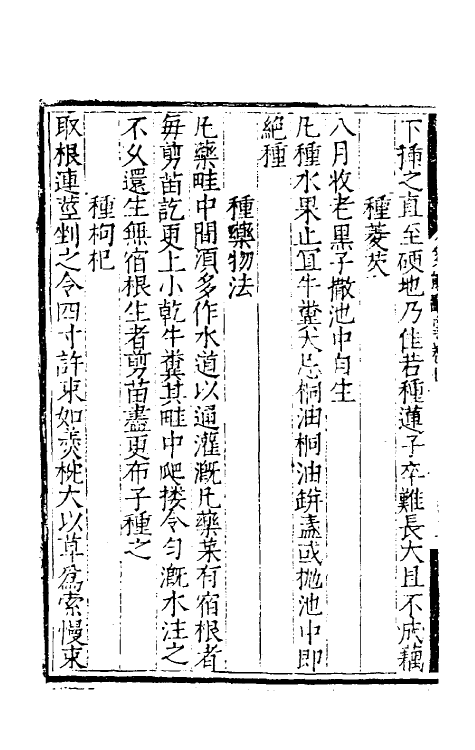 下種之直至硬地乃佳若種蓮子卒難長大且不成藕
種菱芡
八月收老黑子撒池中自生
凡種水果止宜牛糞大忌桐油桐油缾盞或拋池中即
絕種
種藥物法
凡藥畦中間須多作水道以通灌漑凡藥菜有宿根者
每剪苗訖更上小乾牛糞其畦中爬摟令勻漑水注之
不久還生無宿根生者剪苗盡更布子種之
種枸杞
取根連莖剉之令四寸許束如羮椀大以草爲索慢束